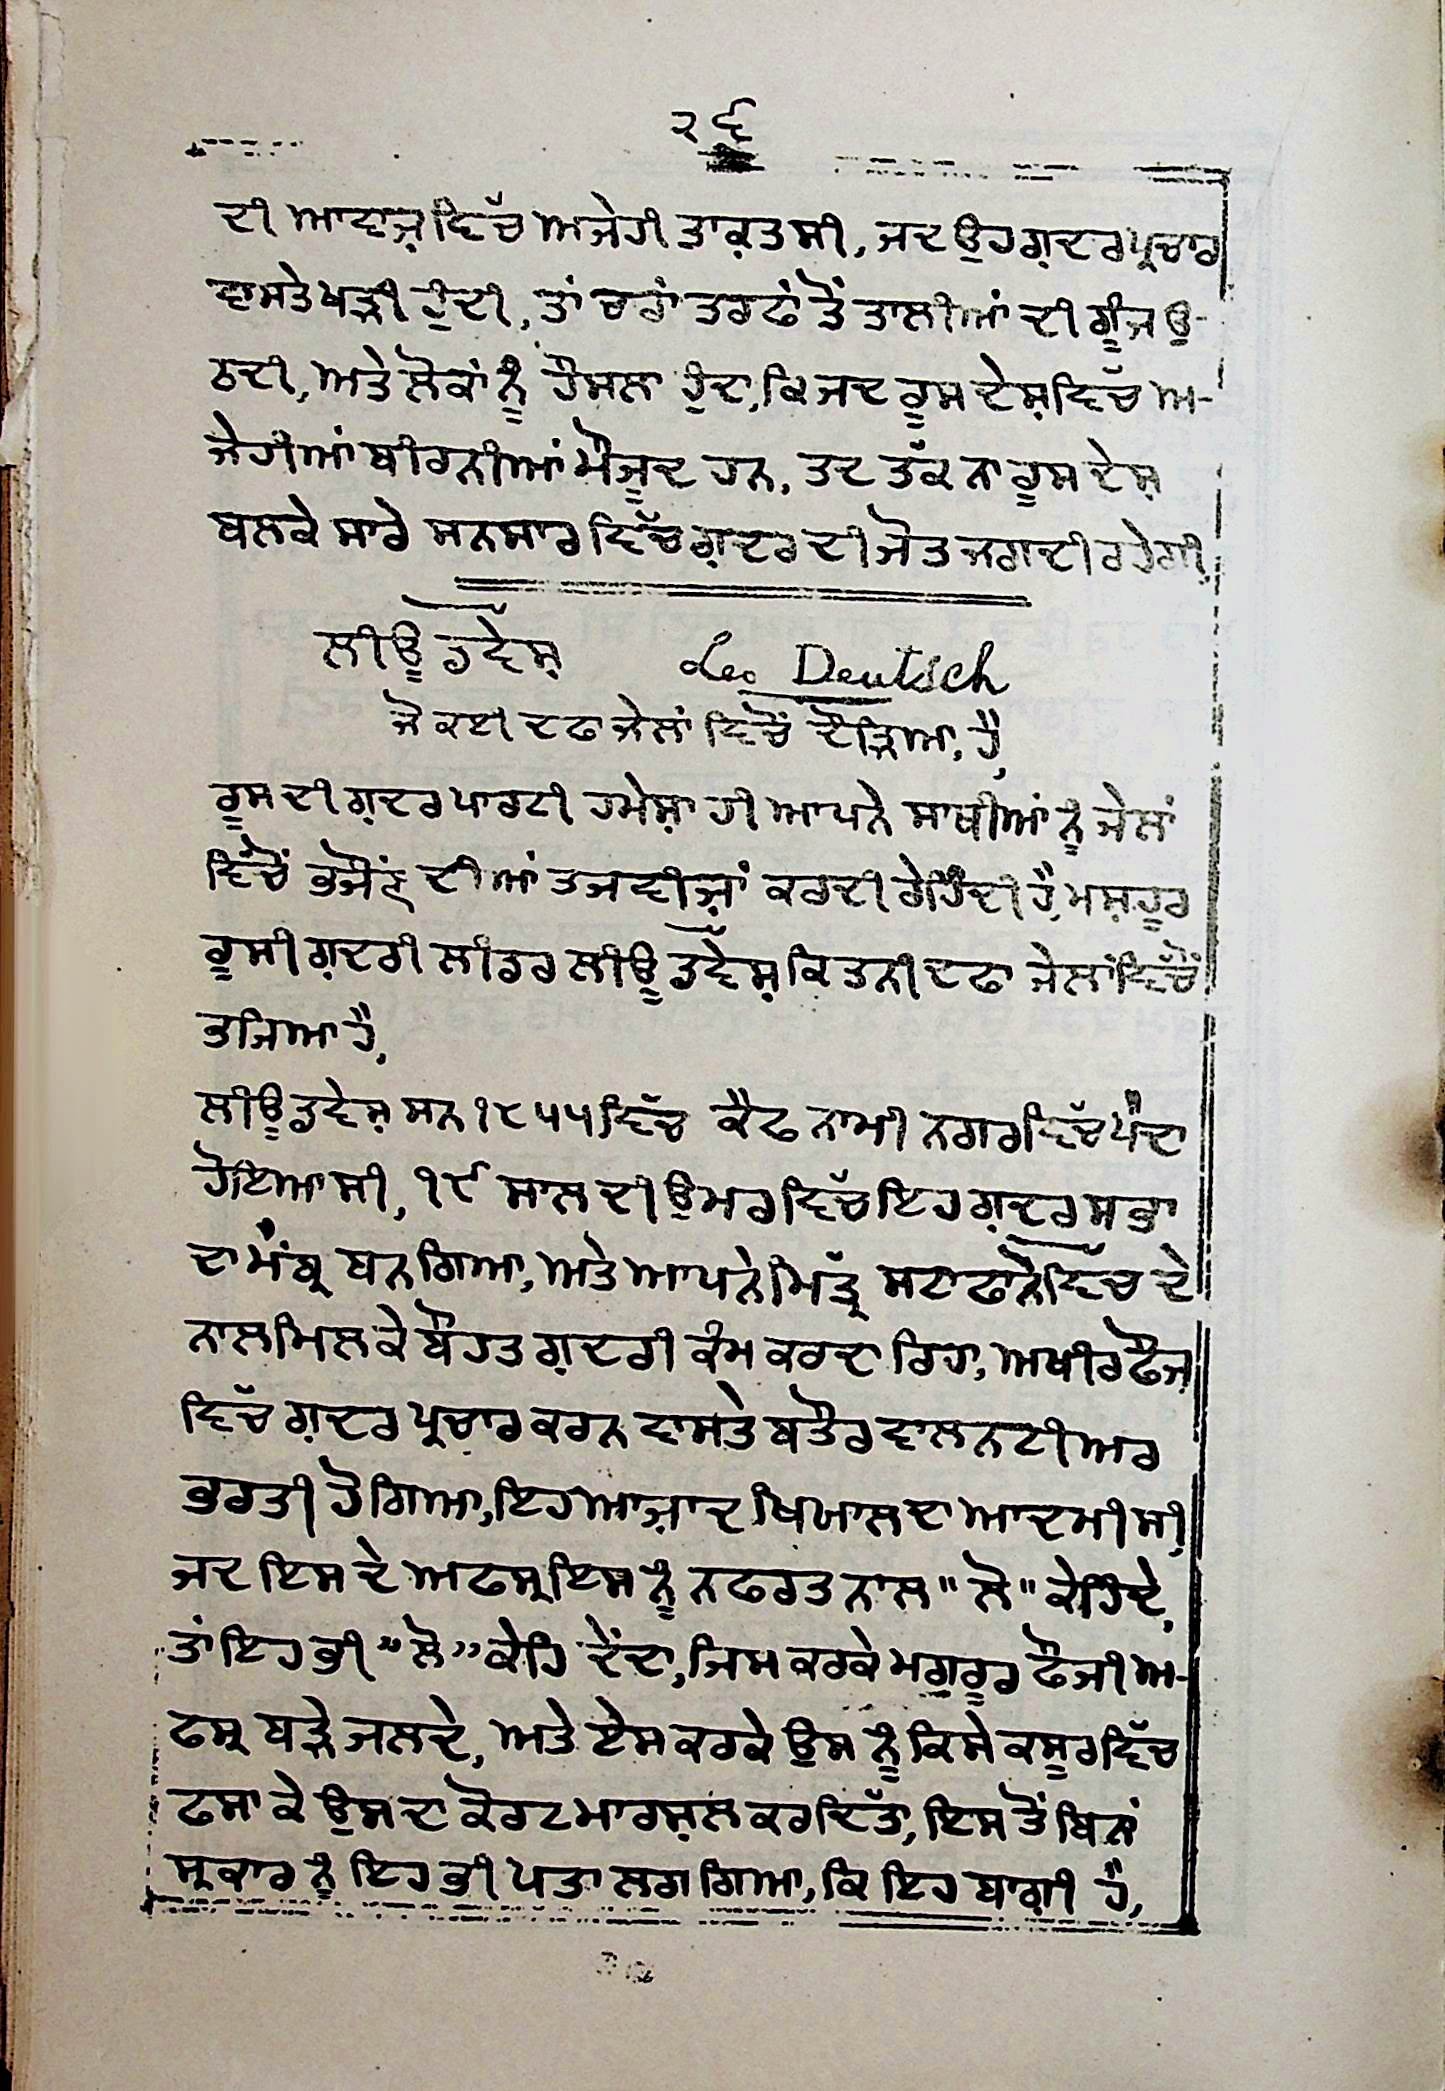 ੨੬
ਦੀ ਆਵਾਜ਼ ਵਿੱਚ ਅਜੇਹੀ ਤਾਕ਼ਤ ਸੀ, ਜਦ ਉਹ ਗ਼ਦਰ ਪ੍ਰਚਾਰ
ਵਾਸਤੇ ਖੜੀ ਹੁੰਦੀ, ਤਾਂ ਚਰਾਂ ਤਰਫਾਂ ਤੋਂ ਤਾਲੀਆਂ ਦੀ ਗੂੰਜ ਉ-
ਠਦੀ, ਅਤੇ ਲੋਕਾਂ ਨੂੰ ਹੌਸਲਾ ਹੁੰਦਾ, ਕਿ ਜਦ ਰੂਸ ਦੇਸ਼ ਵਿੱਚ ਅ-
ਜੇਹੀਆਂ ਬੀਰਨੀਆਂ ਮੌਜੂਦ ਹਨ, ਤਦ ਤੱਕ ਨਾ ਰੂਸ ਦੇਸ਼
ਬਲਕੇ ਸਾਰੇ ਸਨਸਾਰ ਵਿੱਚ ਗ਼ਦਰ ਦੀ ਜੋਤ ਜਗਦੀ ਰਹੇਗੀ,
ਲੀਊ ਹਵੇਸ਼ Leo Deutsch
ਜੋ ਕਈ ਦਫ ਜੇਲਾਂ ਵਿਚੋਂ ਦੌੜਿਆ, ਹੈ,
ਰੂਸ ਦੀ ਗ਼ਦਰ ਪਾਰਟੀ ਹਮੇਸ਼ਾ ਹੀ ਆਪਨੇ ਸਾਥੀਆਂ ਨੂੰ ਜੇਲਾਂ
ਵਿੱਚੋਂ ਭਜੌਣ ਦੀਆਂ ਤਜਵੀਜ਼ਾਂ ਕਰਦੀ ਰੇਹਿੰਦੀ ਹੈ, ਮਸ਼ਹੂਰ
ਰੂਸੀ ਗ਼ਦਰੀ ਲੀਡਰ ਲੀਊ ਡਵੇੱਸ਼ ਕਿਤਨੀ ਦਫਾ ਜੇਲਾਂ ਵਿੱਚੋਂ
ਭਜਿਆ ਹੈ,
ਲੀਊ ਡਵੇਸ਼ ਸਨ ੧੮੫੫ ਵਿੱਚ ਕੈਫ ਨਾਮੀ ਨਗਰ ਵਿੱਚ ਪੈਦਾ
ਹੋਇਆ ਸੀ, ੧੯ ਸਾਲ ਦੀ ਉਮਰ ਵਿੱਚ ਇਹ ਗ਼ਦਰ ਸਭਾ
ਦਾ ਮੈਂਬ੍ਰ ਬਨ ਗਿਆ, ਅਤੇ ਆਪਨੇ ਮਿੱਤ੍ਰ ਸਟਾਫਨੋਵਿੱਚ ਦੇ
ਨਾਲ ਮਿਲ ਕੇ ਬੌਹਤ ਗ਼ਦਰੀ ਕੰਮ ਕਰਦਾ ਰਿਹਾ, ਅਖੀਰ ਫੌਜ
ਵਿੱਚ ਗ਼ਦਰ ਪ੍ਰਚਾਰ ਕਰਨ ਵਾਸਤੇ ਬਤੌਰ ਵਾਲਨਟੀਅਰ
ਭਰਤੀ ਹੋ ਗਿਆ, ਇਹ ਆਜ਼ਾਦ ਖਿਆਲ ਦਾ ਆਦਮੀ ਸੀ,
ਜਦ ਇਸ ਦੇ ਅਫਸ੍ਰ ਇਸ ਨੂੰ ਨਫਰਤ ਨਾਲ "ਲੋ" ਕੇਹਿੰਦੇ,
ਤਾਂ ਇਹ ਭੀ "ਲੋ" ਕੇਹਿ ਦੇਂਦਾ, ਜਿਸ ਕਰਕੇ ਮਗ਼ਰੂਰ ਫੌਜੀ ਅ-
ਫਸ੍ਰ ਬੜੇ ਜਲਦੇ, ਅਤੇ ਏਸ ਕਰਕੇ ਉਸ ਨੂੰ ਕਿਸੇ ਕਸੂਰ ਵਿੱਚ
ਫਸਾ ਕੇ ਉਸ ਦਾ ਕੋਰਟ ਮਾਰਸ਼ਲ ਕਰ ਦਿੱਤਾ, ਇਸ ਤੋਂ ਬਿਨਾਂ
ਸ੍ਰਕਾਰ ਨੂੰ ਇਹ ਭੀ ਪਤਾ ਲਗ ਗਿਆ, ਕਿ ਇਹ ਬਾਗ਼ੀ ਹੈ,